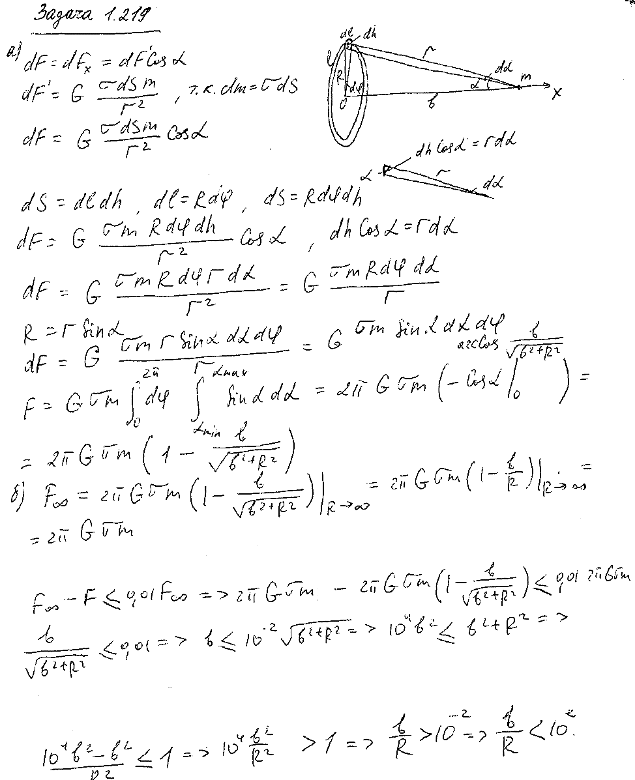 Задача 1.219
а) dF = dFₓ = dF' Cos α
dF' = G σ dS m / r² , т.к. dm = σ dS
dF = G σ dS m / r² Cos α
dl dh r R dφ O b α dα m x
dh Cos α = r dα
α r dα
dS = dl dh , dl = R dφ , dS = R dφ dh
dF = G σ m R dφ dh / r² Cos α , dh Cos α = r dα
dF = G σ m R dφ r dα / r² = G σ m R dφ dα / r
R = r Sin α
dF = G σ m r Sin α dα dφ / r = G σ m Sin α dα dφ
F = G σ m ∫₀^{2π} dφ ∫_{αmin}^{αmax} Sin α dα = 2π G σ m (− Cos α |₀^{arccos b/√(b²+R²)}) =
= 2π G σ m (1 − b/√(b²+R²))
б) F∞ = 2π G σ m (1 − b/√(b²+R²))|R→∞ = 2π G σ m (1 − b/R)|R→∞ =
= 2π G σ m
F∞ − F ≤ 0,01 F∞ => 2π G σ m − 2π G σ m (1 − b/√(b²+R²)) ≤ 0,01 2π G σ m
b/√(b²+R²) ≤ 0,01 => b ≤ 10⁻² √(b²+R²) => 10⁴ b² ≤ b² + R² =>
(10⁴ b² − b²)/R² ≤ 1 => 10⁴ b²/R² > 1 => b/R > 10⁻² => b/R < 10²